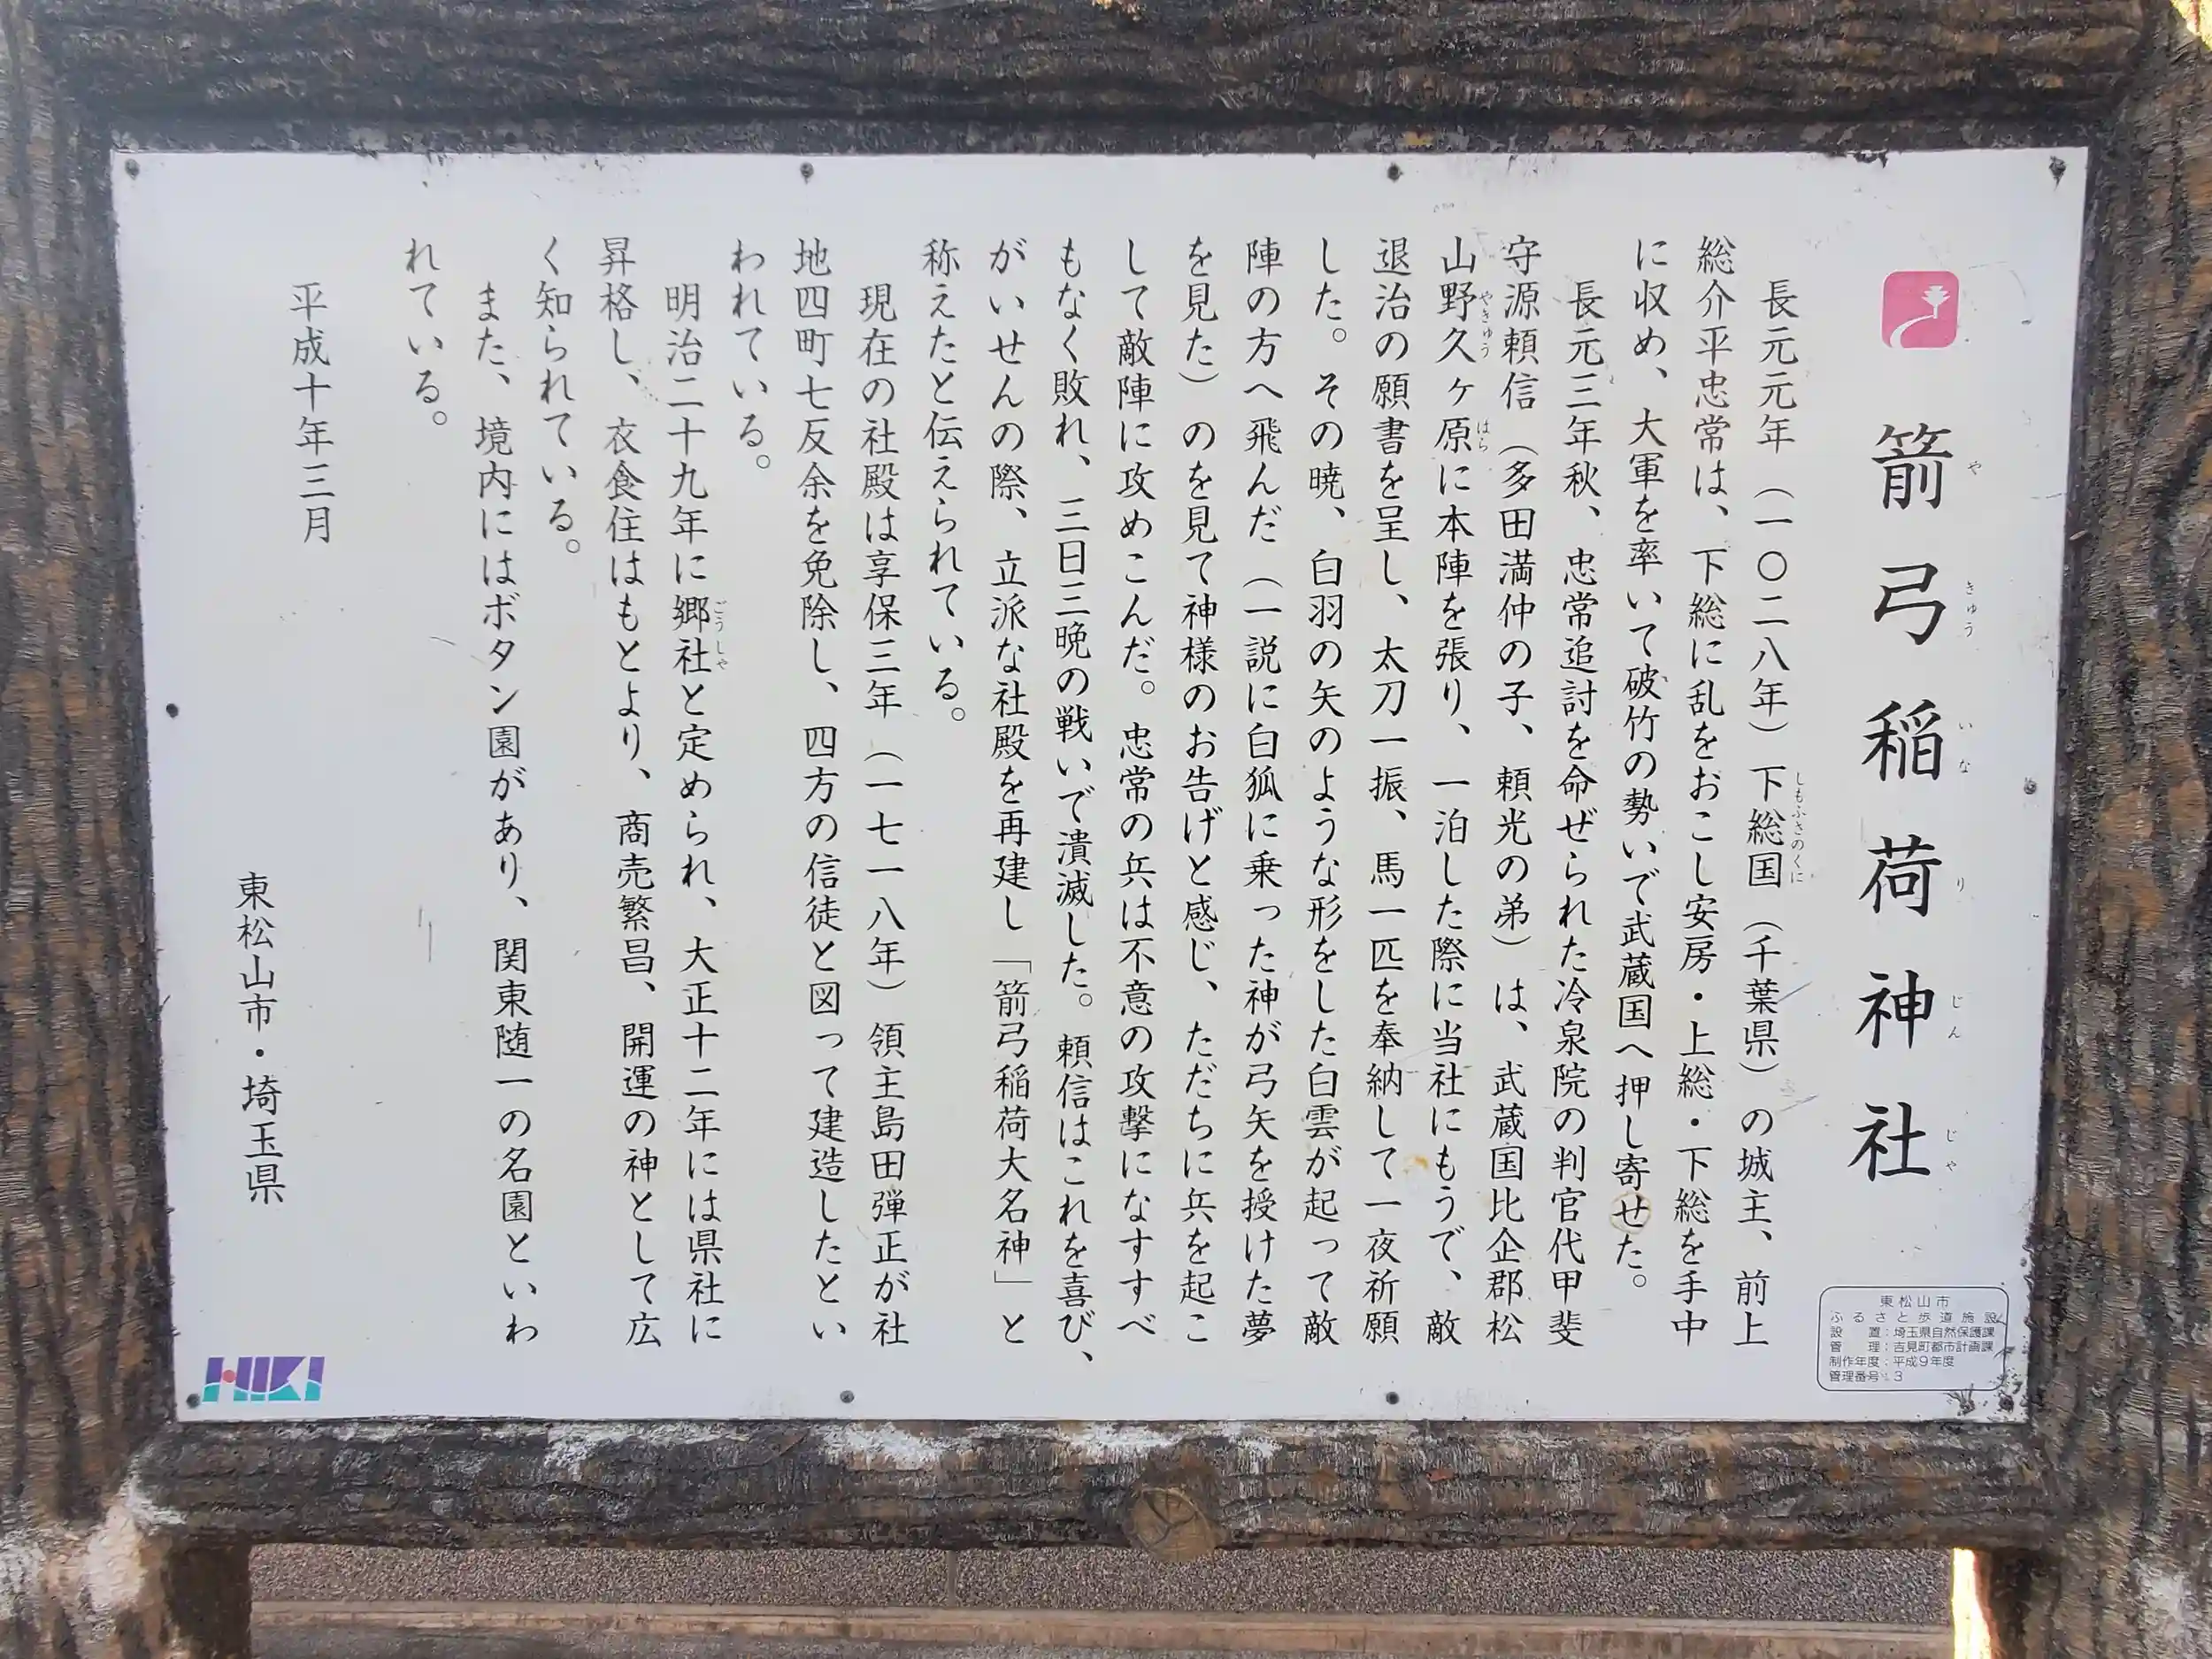 箭弓稲荷神社
や きゅう いな り じん じゃ
長元元年（一〇二八年）下総国（千葉県）の城主、前上
しもふさのくに
総介平忠常は、下総に乱をおこし安房・上総・下総を手中
に収め、大軍を率いて破竹の勢いで武蔵国へ押し寄せた。
長元三年秋、忠常追討を命ぜられた冷泉院の判官代甲斐
守源頼信（多田満仲の子、頼光の弟）は、武蔵国比企郡松
山野久ヶ原に本陣を張り、一泊した際に当社にもうで、敵
やきゅう はら
退治の願書を呈し、太刀一振、馬一匹を奉納して一夜祈願
した。その暁、白羽の矢のような形をした白雲が起って敵
陣の方へ飛んだ（一説に白狐に乗った神が弓矢を授けた夢
を見た）のを見て神様のお告げと感じ、ただちに兵を起こ
して敵陣に攻めこんだ。忠常の兵は不意の攻撃になすすべ
もなく敗れ、三日三晩の戦いで潰滅した。頼信はこれを喜び、
がいせんの際、立派な社殿を再建し「箭弓稲荷大名神」と
称えたと伝えられている。
現在の社殿は享保三年（一七一八年）領主島田弾正が社
地四町七反余を免除し、四方の信徒と図って建造したとい
われている。
明治二十九年に郷社と定められ、大正十二年には県社に
ごうしゃ
昇格し、衣食住はもとより、商売繁昌、開運の神として広
く知られている。
また、境内にはボタン園があり、関東随一の名園といわ
れている。
平成十年三月
東松山市・埼玉県
東松山市
ふるさと歩道施設
設　　置：埼玉県自然保護課
管　　理：吉見町都市計画課
制作年度：平成9年度
管理番号：3
HIKI